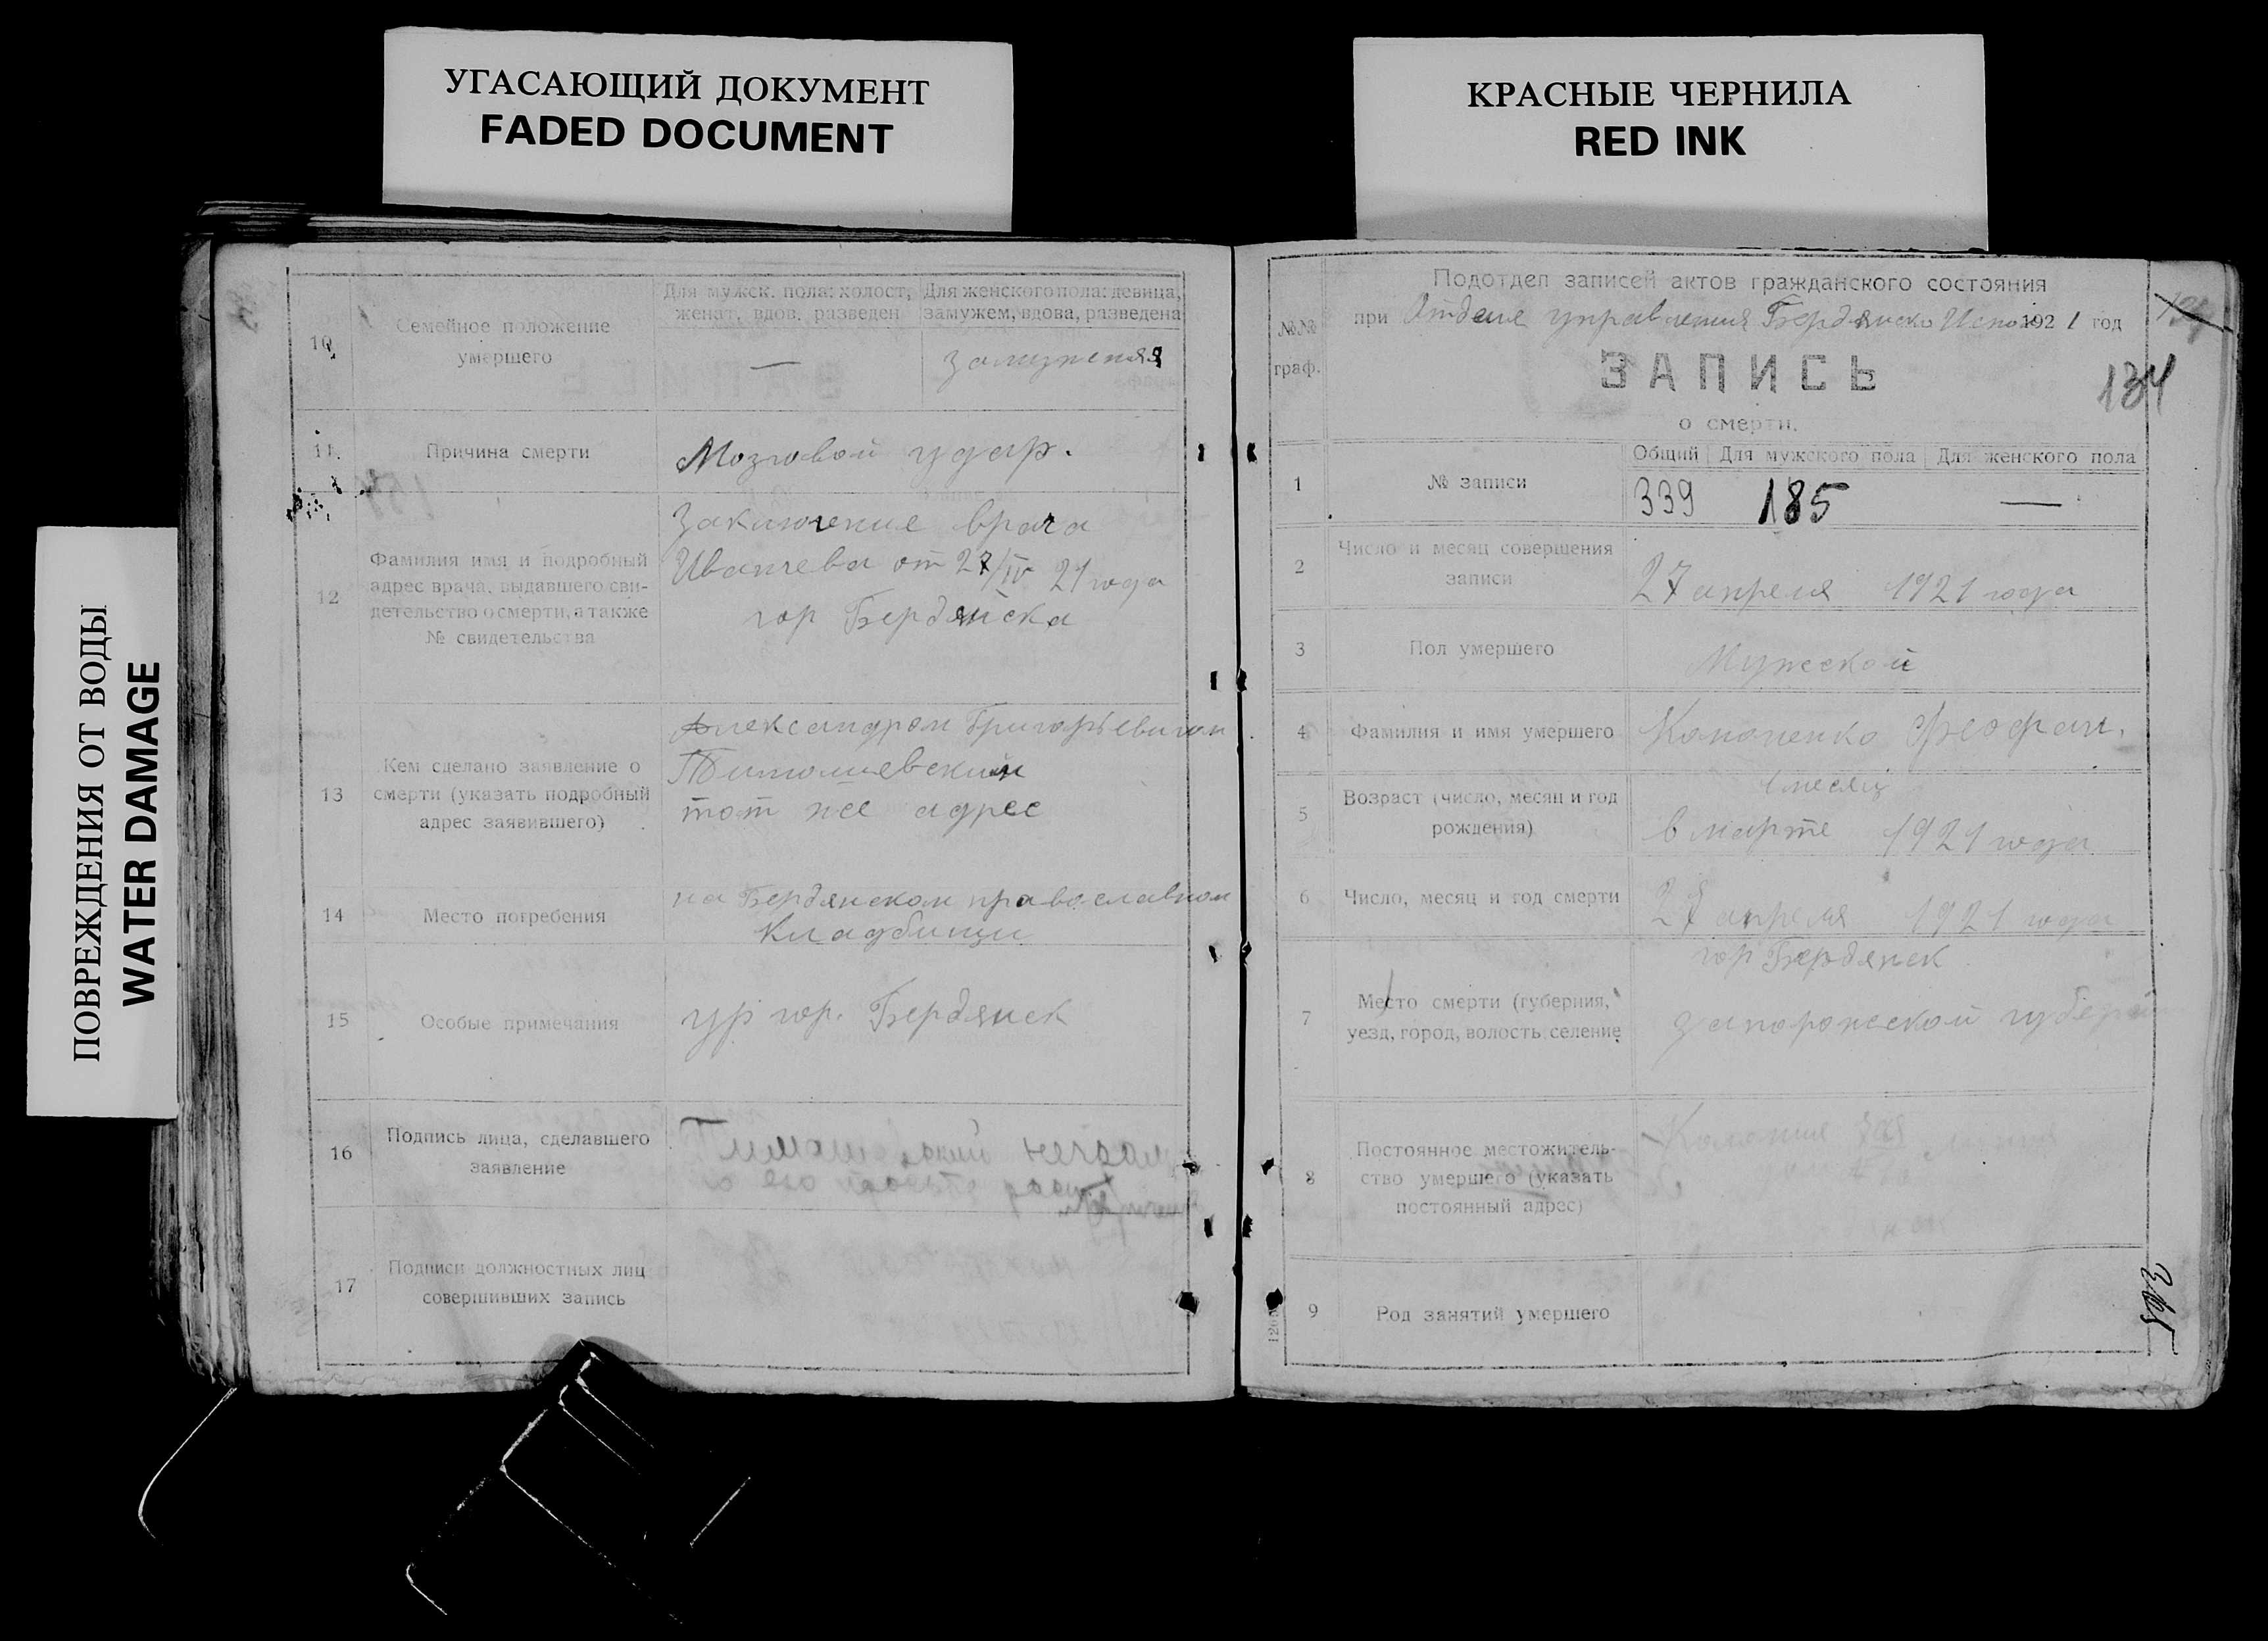 УГАСАЮЩИЙ ДОКУМЕНТ
FADED DOCUMENT
КРАСНЫЕ ЧЕРНИЛА
RED INK
ПОВРЕЖДЕНИЯ ОТ ВОДЫ
WATER DAMAGE
Для мужск. пола: холост, женат, вдов, разведен
Для женского пола: девица, замужем, вдова, разведена
10
Семейное положение
умершего
—
замужняя
11
Причина смерти
Мозговой удар.
12
Фамилия имя и подробный
адрес врача, выдавшего сви-
детельство о смерти, а также
№ свидетельства
Заключение врача
Иванчева от 27/IV 21 года
гор Бердянска
13
Кем сделано заявление о
смерти (указать подробный
адрес заявившего)
Александром Григорьевичем
тот же адрес
14
Место погребения
на Бердянском православном
кладбищи
15
Особые примечания
ур гор. Бердянск
16
Подпись лица, сделавшего
заявление
17
Подписи должностных лиц
совершивших запись
№№
граф.
Подотдел записей актов гражданского состояния
при Отделе управления Бердянско 1921 год
ЗАПИСЬ
о смерти.
134
1
№ записи
Общий Для мужского пола Для женского пола
339 185 —
2
Число и месяц совершения
записи
27 апреля 1921 года
3
Пол умершего
Мужской
4
Фамилия и имя умершего
Кононенко Феофан.
5
Возраст (число, месяц и год
рождения)
1 месяц
в марте 1921 года
6
Число, месяц и год смерти
27 апреля 1921 года
7
Место смерти (губерния,
уезд, город, волость, селение
гор Бердянск
запорожской губерн
8
Постоянное местожитель-
ство умершего (указать
постоянный адрес)
9
Род занятий умершего